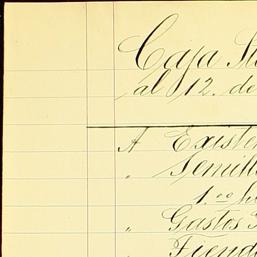 Caja
al 12. de
A Existen
" Semill
1.00
" Gastos
" Tiend